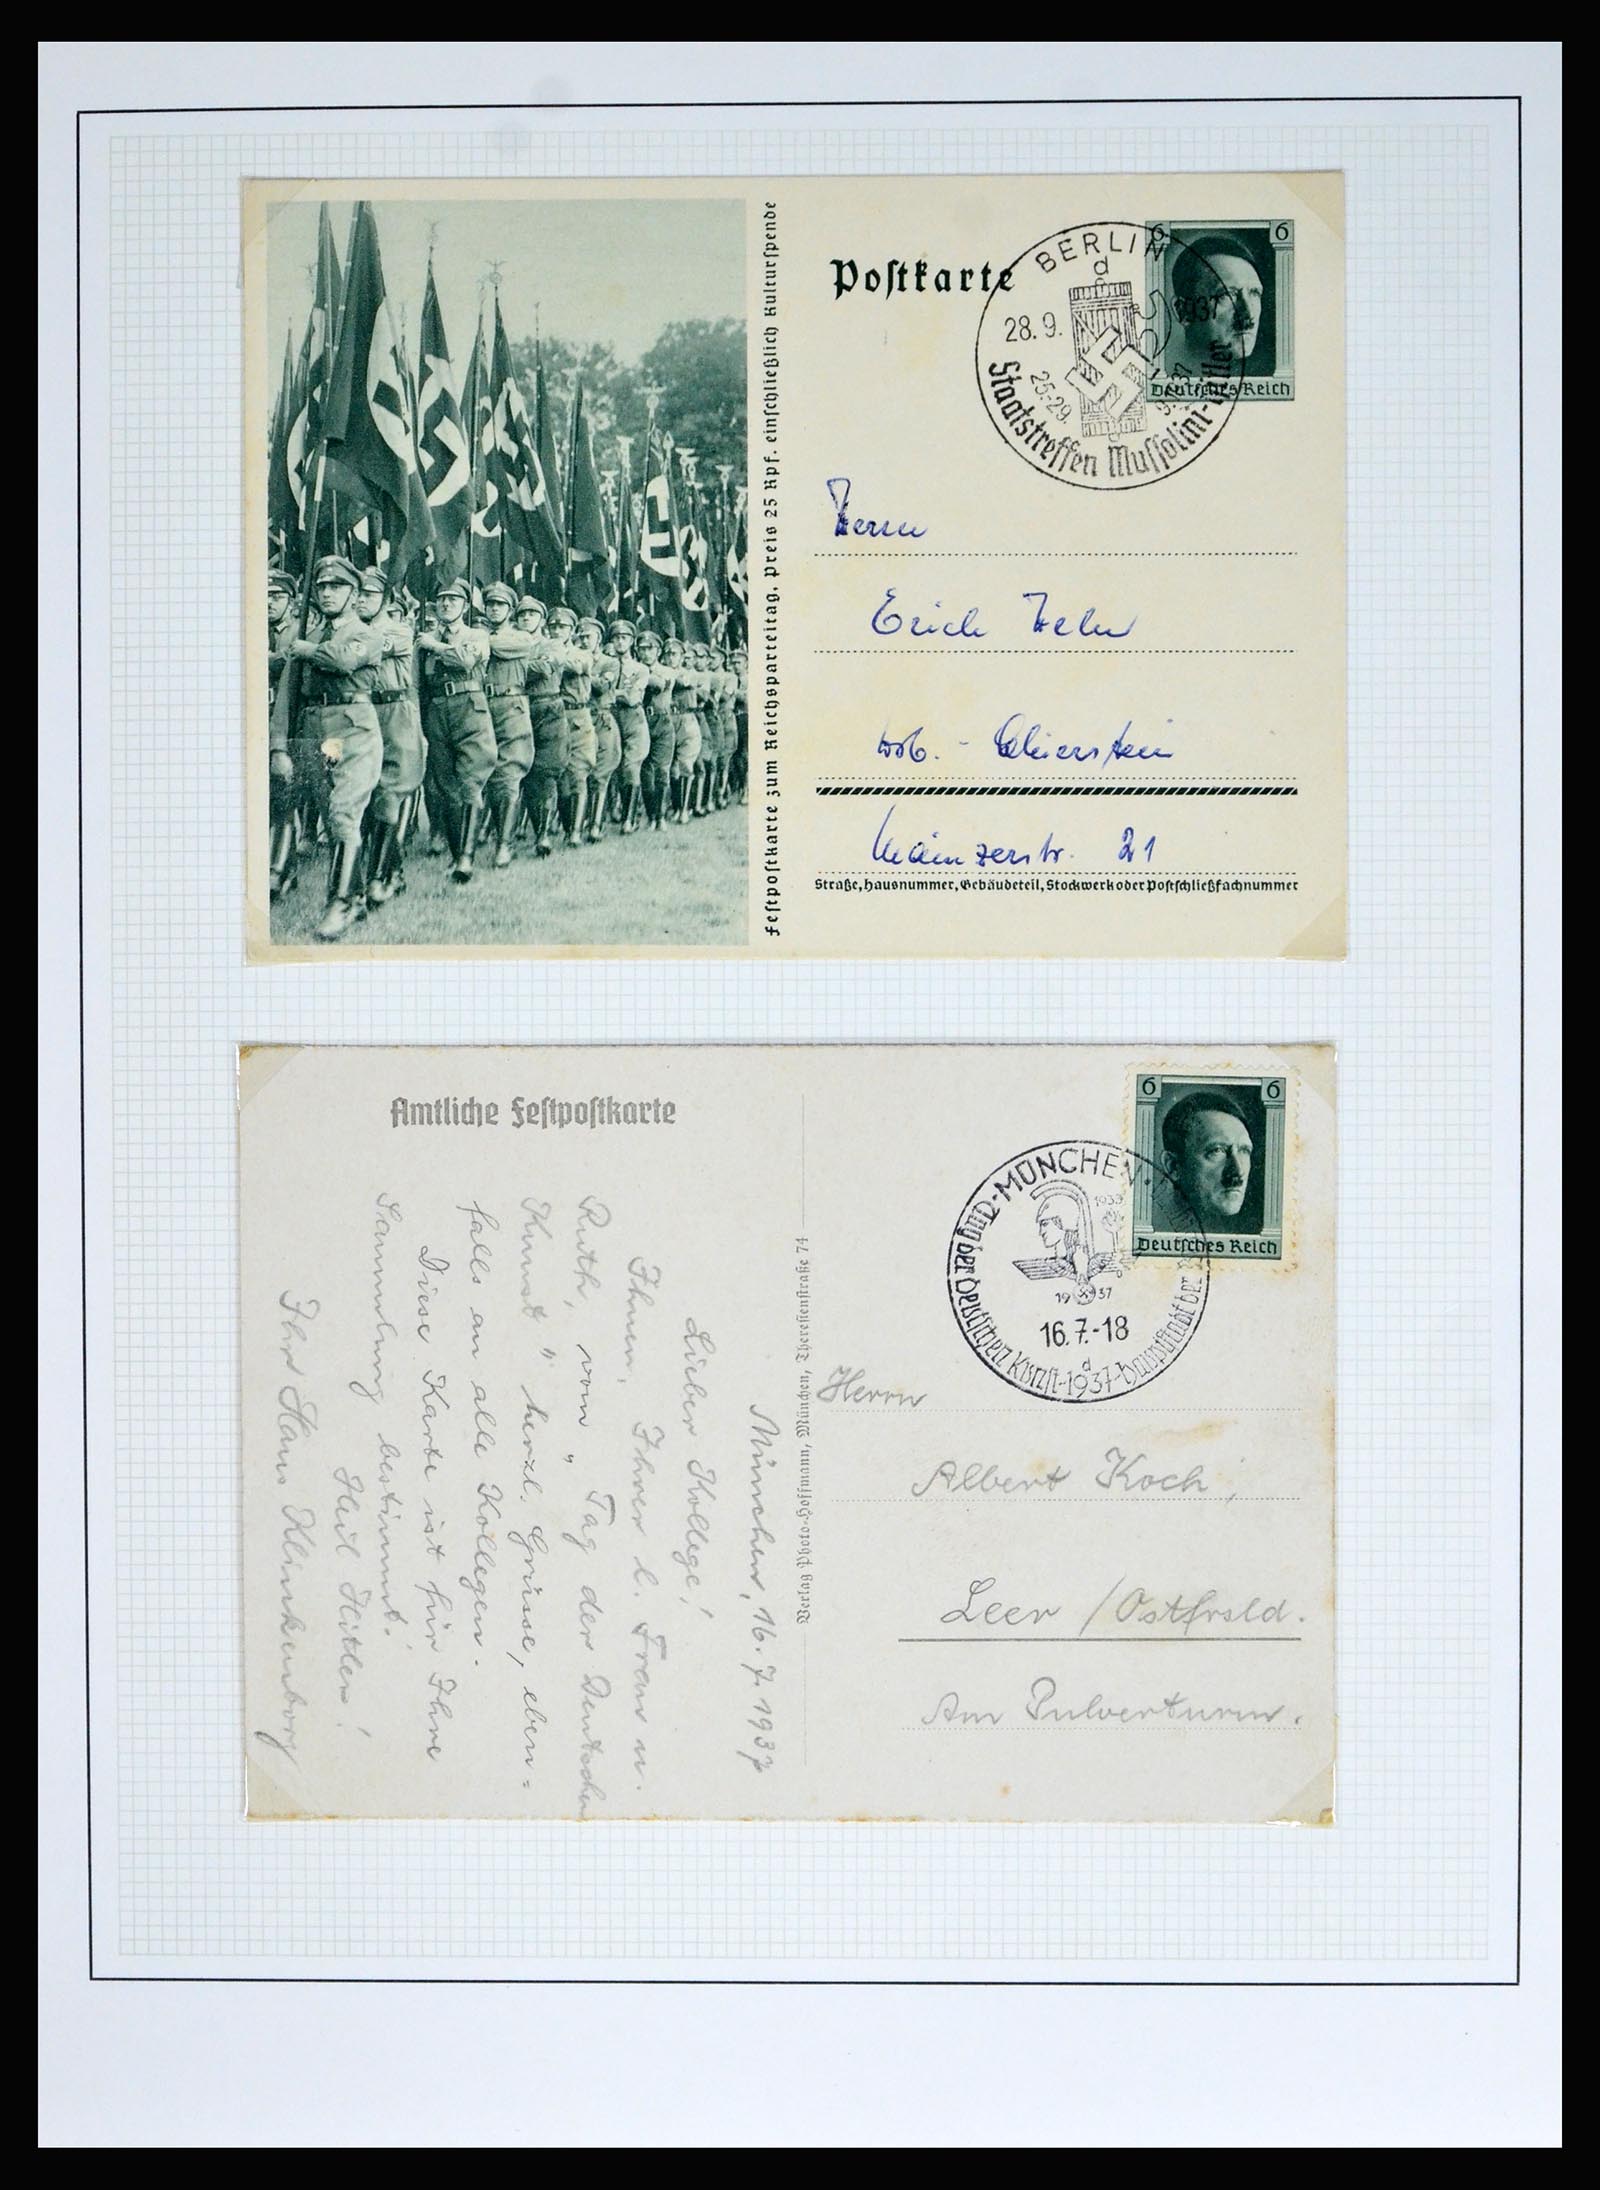 Festpostkarte zum Reichsparteitag. Preis 25 Rpf. einschließlich Kulturspende
Postkarte
BERLIN
d
28.9. 1937
25.-29. 9. 1937
Staatstreffen Mussolini-Hitler
6 6
Deutsches Reich
Herrn
Erich
Mainzerstr. 21
Straße, Hausnummer, Gebäudeteil, Stockwerk oder Postschließfachnummer
Amtliche Festpostkarte
München, 16.7.1937
Lieber Kollege!
Ihnen, Ihrer l. Frau u.
Ruth, vom „Tag der Deutschen
Kunst" herzl. Grüsse, eben=
falls an alle Kollegen.
Diese Karte ist für Ihre
Sammlung bestimmt.
Heil Hitler!
Ihr Hans Klinkenborg
Verlag Photo-Hoffmann, München, Theresienstraße 74
6 6
Deutsches Reich
MÜNCHEN
Tag der Deutschen Kunst-1937-Hauptstadt der
1933
1937
16.7.-18
d
Herrn
Albert Koch,
Leer / Ostfrsld.
Am Pulverturm.